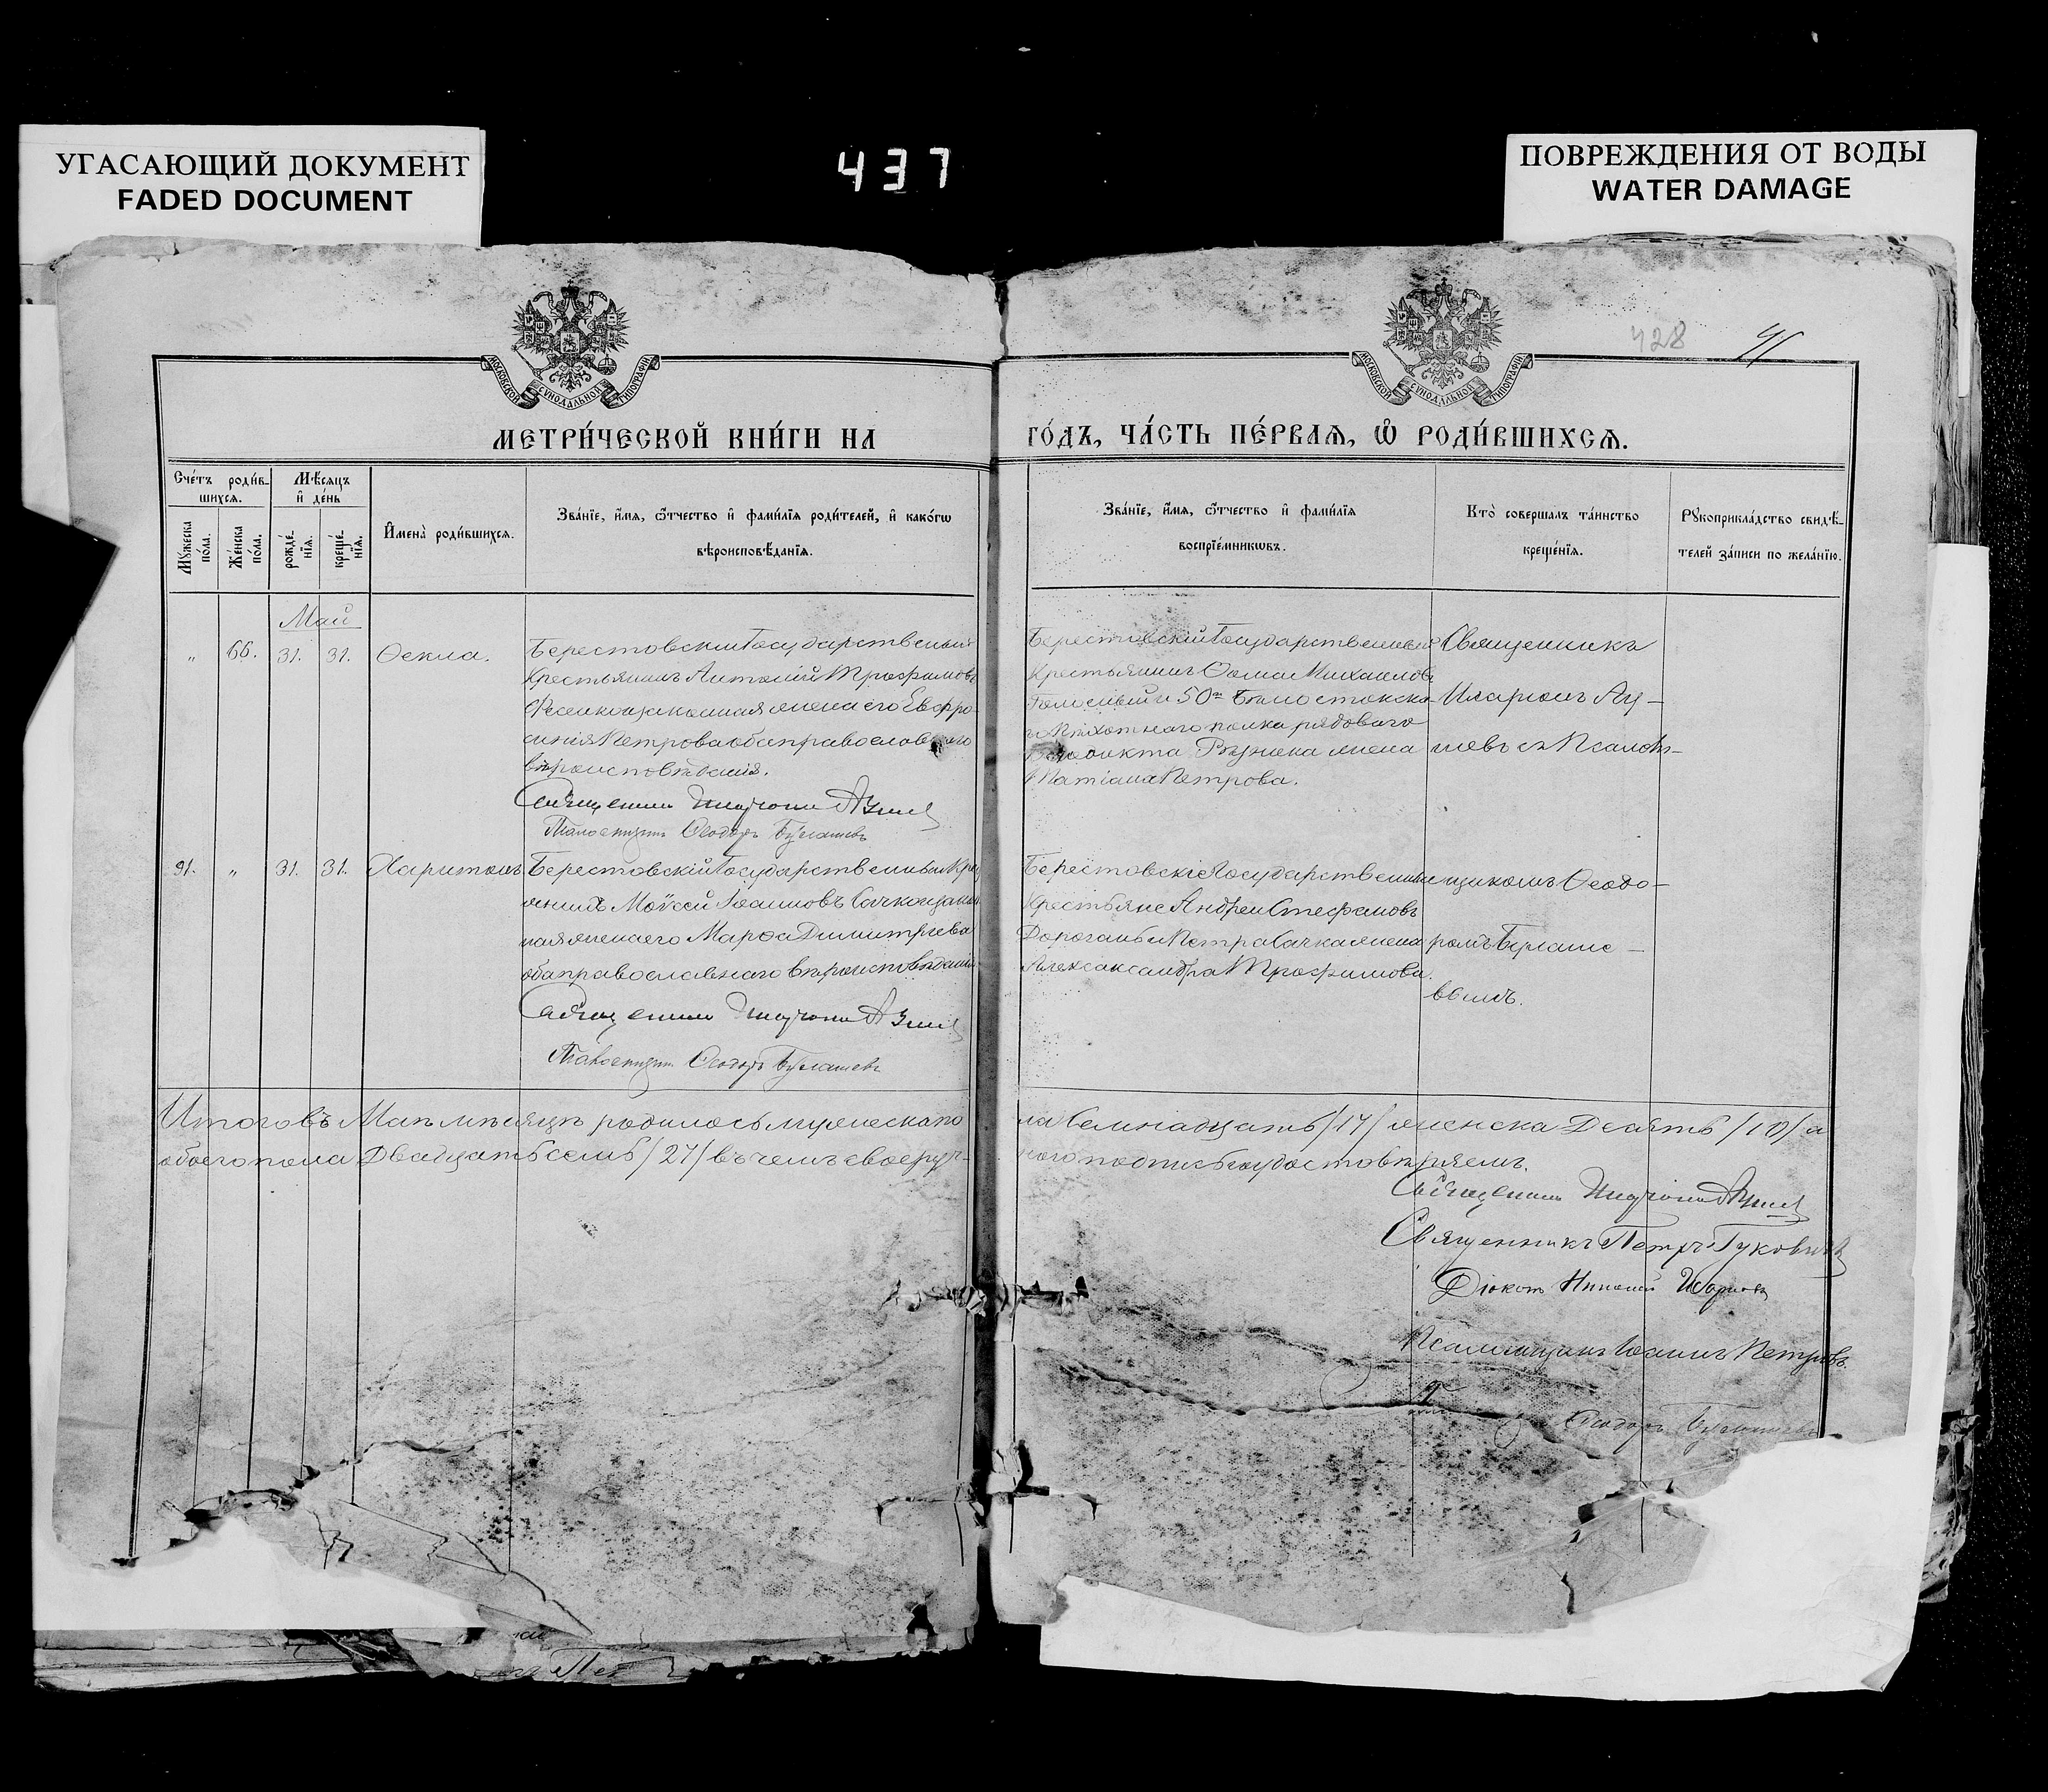 УГАСАЮЩИЙ ДОКУМЕНТ
FADED DOCUMENT
437
ПОВРЕЖДЕНИЯ ОТ ВОДЫ
WATER DAMAGE
428
МОСКОВСКОЙ СѴНОДАЛЬНОЙ ТИПОГРАФІИ
МОСКОВСКОЙ СѴНОДАЛЬНОЙ ТИПОГРАФІИ
МЕТРИ́ЧЕСКОЙ КНИ́ГИ НА
ГО́ДЪ, ЧА́СТЬ ПЕ́РВАѦ, Ѡ҆ РОДИ́ВШИХСѦ.
Сче́тъ роди́в-
шихсѧ.
Мѣ́сѧцъ
и҆ де́нь
Мꙋ́жеска
по́ла.
Же́нска
по́ла.
рожде́-
нїѧ.
креще́-
нїѧ.
И҆мена̀ роди́вшихсѧ.
Зва́нїе, и҆́мѧ, ѻ҆́тчество и҆ фами́лїѧ роди́телей, и҆ како́гѡ
вѣроисповѣ́данїѧ.
Зва́нїе, и҆́мѧ, ѻ҆́тчество и҆ фами́лїѧ
воспрїе́мникѡвъ.
Кто̀ соверша́лъ та́инство
креще́нїѧ.
Рꙋкоприкла́дство свидѣ́-
телей за́писи по жела́нїю.
Май
" 66. 31. 31. Ѳекла.
Берестовскій Государственный
Крестьянинъ Антоній Трофимовъ
законная жена его Евфро-
синія Петрова оба православнаго
вѣроисповѣданія.
Священникъ Иларіонъ
Ѳеодоръ
Берестовскій Государственный
Крестьянинъ Ѳома Михаиловъ
и 50го Бѣлостокска-
го Пѣхотнаго полка рядоваго
жена
Татіана Петрова.
Священникъ
Иларіонъ
съ Псалом-
91. " 31. 31. Харитонъ
Берестовскій Государственный Кре
Мойсей Іоанновъ Сачко и закон
ная жена его Марѳа Димитріева
оба православнаго вѣроисповѣданія
Священникъ Иларіонъ
Ѳеодоръ
Берестовскіе Государственные
Крестьяне Андрей Стефановъ
и Петра Сачка жена
Александра Трофимова.
щикомъ Ѳеодо-
ромъ
вымъ.
Итого въ Маѣ мѣсяцѣ родилось мужеска по
ла Семнадцать /17/ женска Десять /10/ а
обоего пола Двадцать семь /27/ въ чемъ своеруч-
ного подписью удостовѣряемъ.
Священникъ Иларіонъ
Священникъ Петръ Гуковичъ
Діаконъ Николай
Псаломщикъ Іоаннъ Петровъ.
Ѳеодоръ